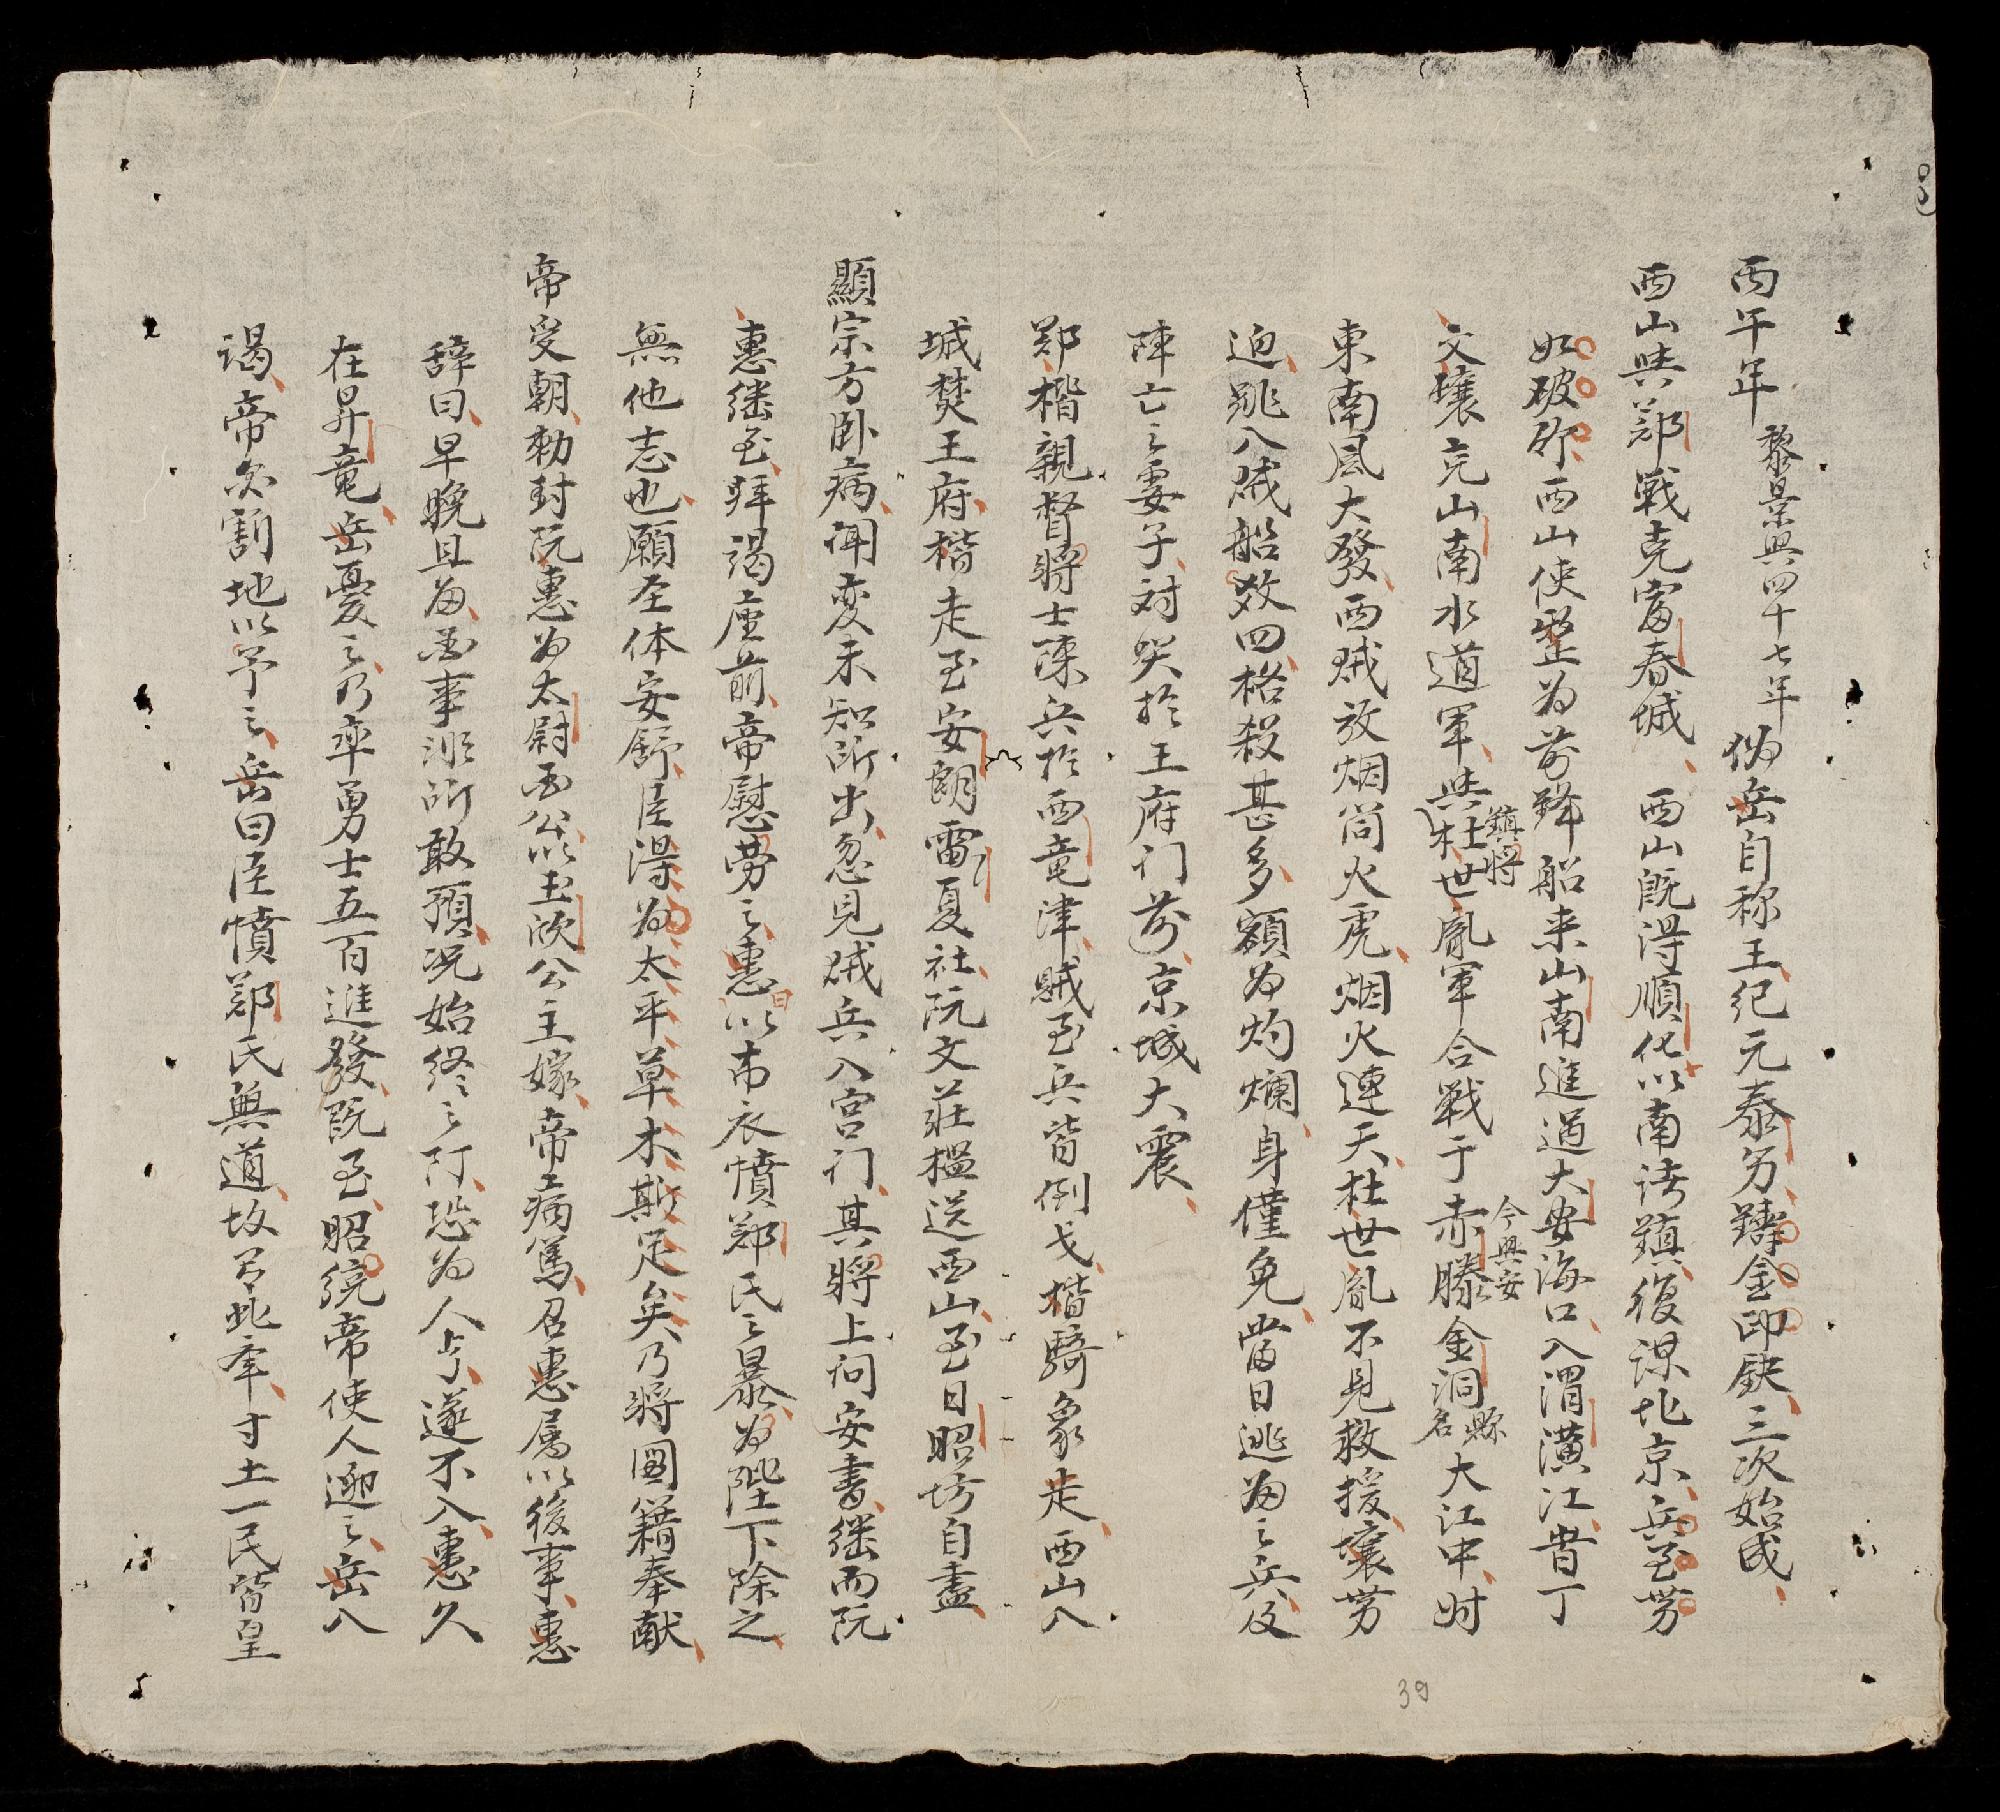 丙午年黎景興四十七年偽岳自称王紀元泰另鑄金印缺三次始成
西山與鄚戰克富春城西山既得順化以南諸鎮復謀北京兵至势
如破竹西山使整為前鋒船来山南進過大安海口入渭潢江昔丁
文壤克山南水道軍與鎮将杜世胤軍合戰于赤滕今興安金洞縣名大江中时
東南風大發西贼放烟筒火虎烟火連天杜世胤不見救援壤势
迫跳入贼船效四格殺甚多額為灼爛身僅免當日逃为之兵及
陣亡之妻子对哭於王府门前京城大震
鄚楷親督將士陳兵於西竜津賊至兵皆倒戈楷騎象走西山入
城焚王府楷走至安朗雷夏社阮文莊檻送西山至日昭坊自盡
顯宗方卧病闻变未知所出忽見贼兵入宫门其將上问安書继而阮
惠继至拜謁座前帝慰劳之惠曰以布衣憤鄚氏之暴为陛下除之
無他志也願圣体安舒臣得為太平草木斯足矣乃將圖籍奉献
帝受朝勅封阮惠为太尉国公以玉欣公主嫁帝病篤召惠属以後事惠
辞曰早晚且为国事非所敢預况始终之际恐为人言遂不入惠久
在昇竜岳憂之乃率勇士五百進發既至昭統帝使人迎之岳入
謁帝欲割地以予之岳曰臣憤鄚氏無道故有此举寸土一民皆皇